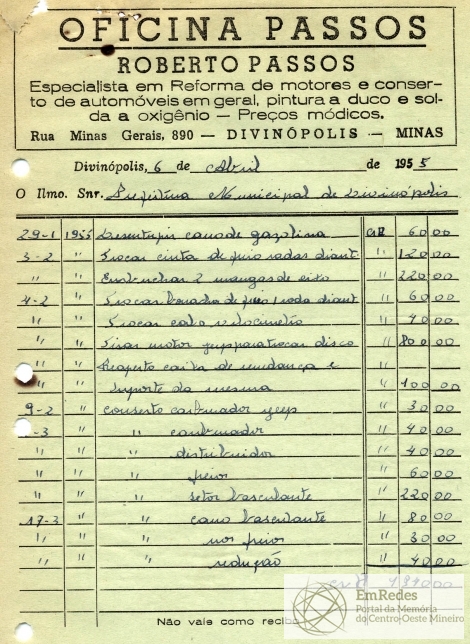 OFICINA PASSOS
ROBERTO PASSOS
Especialista em Reforma de motores e conser-
to de automóveis em geral, pintura a duco e sol-
da a oxigênio — Preços módicos.
Rua Minas Gerais, 890 — DIVINÓPOLIS — MINAS
Divinópolis, 6 de Abril de 1955
O Ilmo. Snr. Prefeitura Municipal de Divinópolis
29-1 1955 Desentupir cano de gazolina 60 00
3-2 " Trocar cinta de freio rodas diant. " 120 00
" " Embuchar 2 mangas de eixo " 220 00
4-2 " Trocar de freio 1 roda diant " 60 00
" " Trocar cabo velocimetro " 40 00
" " Tirar motor jeep para trocar disco " 800 00
" " Reaperto caixa de mudança e "
" " suporte da mesma " 100 00
9-2 " conserto carburador jeep " 30 00
-3 " " carburador " 40 00
" " " distribuidor " 40 00
" " " freios " 60 00
" " " setor basculante " 220 00
17-3 " " cano basculante " 80 00
" " " nos freios " 30 00
" " " redução " 40 00
Não vale como recibo
EmRedes
Portal da Memória
do Centro-Oeste Mineiro